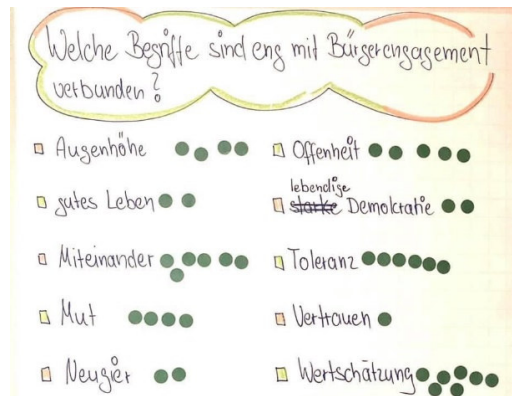 Welche Begriffe sind eng mit Bürgerengagement
verbunden?
Augenhöhe
gutes Leben
Miteinander
Mut
Neugier
Offenheit
lebendige
starke Demokratie
Toleranz
Vertrauen
Wertschätzung